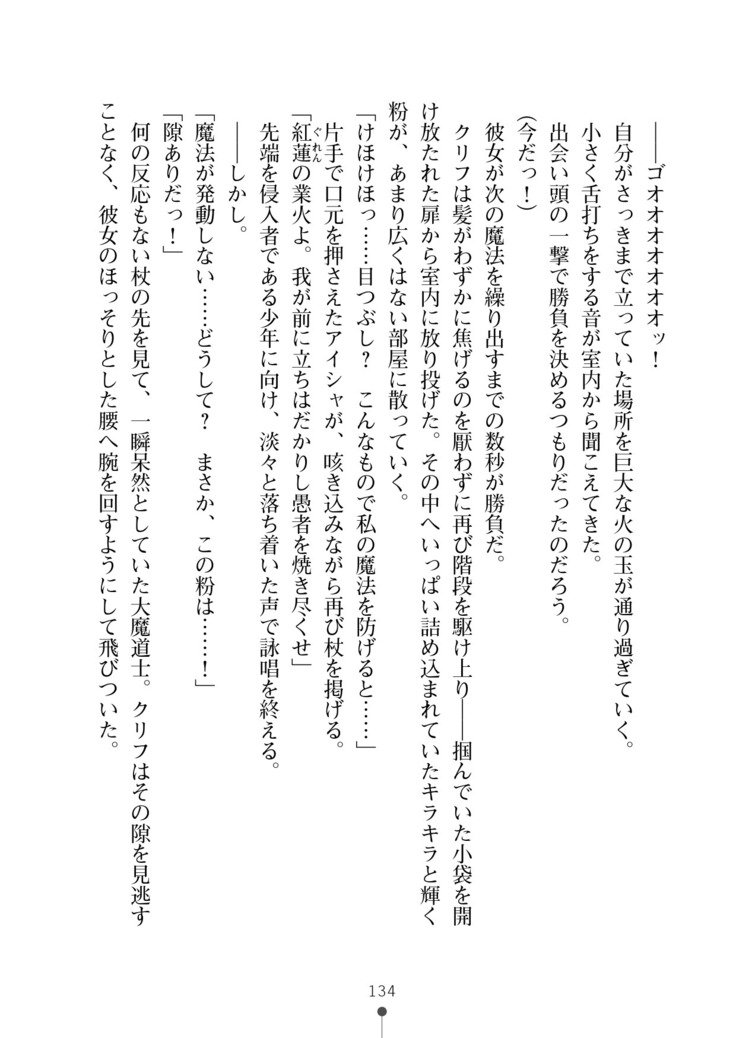 ――ゴオオオオオオオッ！
自分がさっきまで立っていた場所を巨大な火の玉が通り過ぎていく。
小さく舌打ちをする音が室内から聞こえてきた。
出会い頭の一撃で勝負を決めるつもりだったのだろう。
（今だっ！）
彼女が次の魔法を繰り出すまでの数秒が勝負だ。
クリフは髪がわずかに焦げるのを厭わずに再び階段を駆け上り――掴んでいた小袋を開
け放たれた扉から室内に放り投げた。その中へいっぱい詰め込まれていたキラキラと輝く
粉が、あまり広くはない部屋に散っていく。
「けほけほっ……目つぶし？　こんなもので私の魔法を防げると……」
片手で口元を押さえたアイシャが、咳き込みながら再び杖を掲げる。
「紅蓮の業火よ。我が前に立ちはだかりし愚者を焼き尽くせ」
ぐれん
先端を侵入者である少年に向け、淡々と落ち着いた声で詠唱を終える。
――しかし。
「魔法が発動しない……どうして？　まさか、この粉は……！」
「隙ありだっ！」
何の反応もない杖の先を見て、一瞬呆然としていた大魔道士。クリフはその隙を見逃す
ことなく、彼女のほっそりとした腰へ腕を回すようにして飛びついた。
134